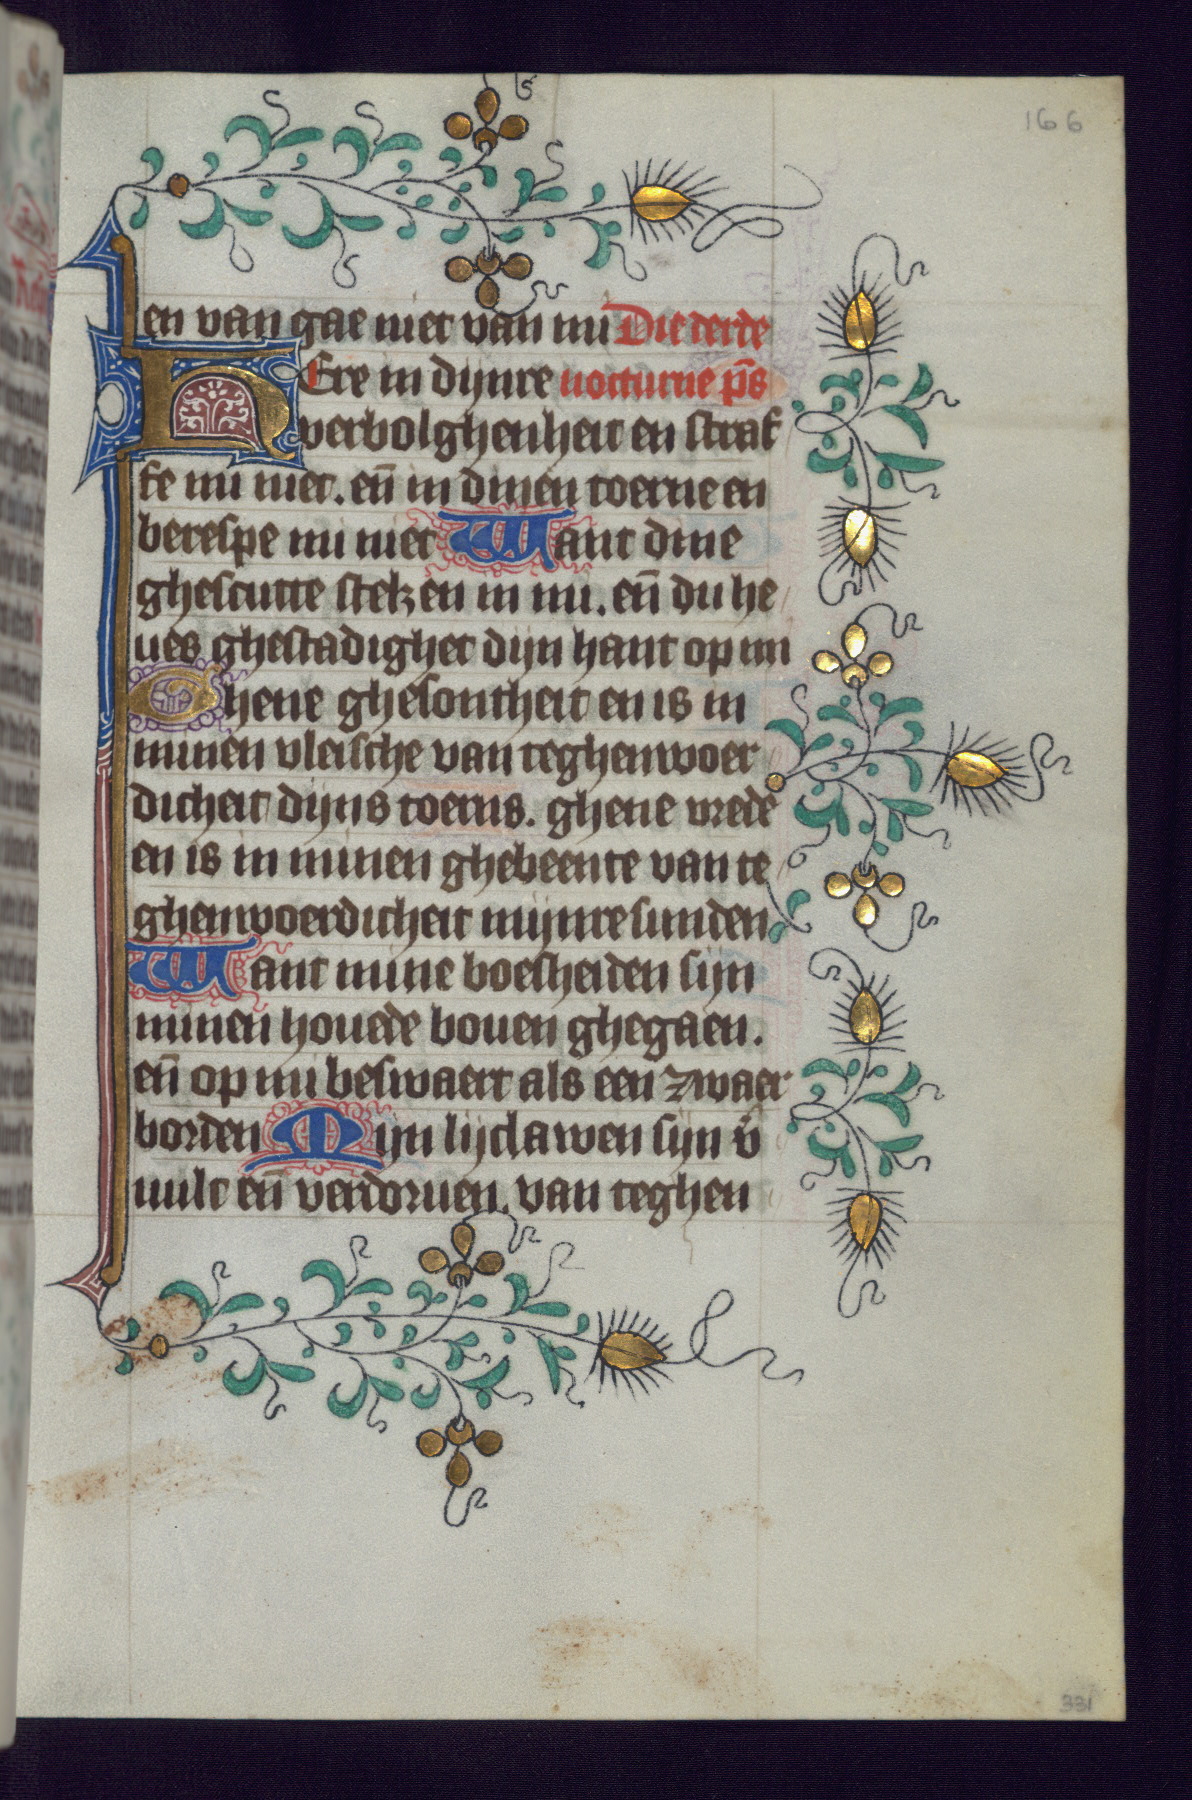 166
en van gae niet van mi Die derde
HEre in dijnre nocturne ps̄
verbolghenheit en straf
fe mi niet. en̄ in dinen toerne en
berespe mi niet Want dine
ghescutte steken in mi. en̄ du he
ues ghestadighet dijn hant op mi
Ghene ghesontheit en is in
minen vleische van teghenwoer
dicheit dijns toerns. ghene vrede
en is in minen ghebeente van te
ghenwoerdicheit mijnre sunden
Want mine boesheiden sijn
minen houede bouen ghegaen.
en̄ op mi beswaert als een zwaer
borden Mijn lijclawen sijn v̄
uult en̄ verdoruen. van teghen
331